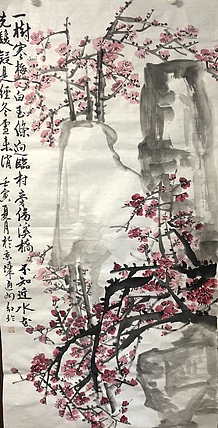 一樹寒梅白玉條向臨村旁傍溪橋不知近水花
先發疑是經冬雪未消壬寅夏月於京